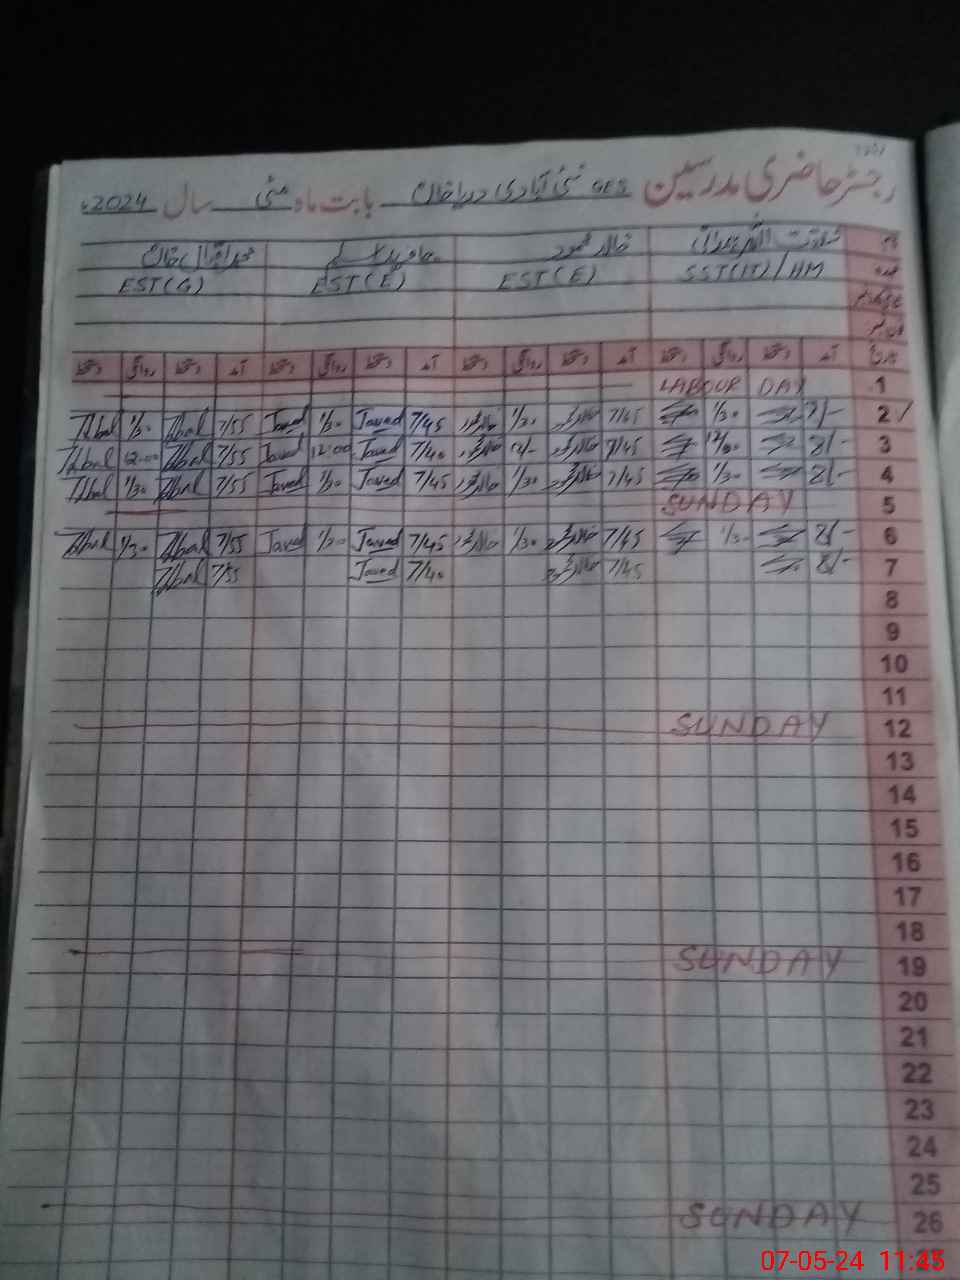 رجسٹر حاضری مدرسین GES نئی آبادی دریا خان بابت ماہ مئی سال 2024ء
نام خالد محمود محمد اقبال خان
عہدہ SST(IT)/HM EST(E) EST(E) EST(G)
تاریخ آمد دستخط روانگی دستخط آمد دستخط روانگی دستخط آمد دستخط روانگی دستخط آمد دستخط روانگی دستخط
1 LABOUR DAY
2 1/30 7/45 1/30 7/45 Javed 1/30 Javed 7/55 Iqbal 1/30 Iqbal
3 8/- 7/45 7/40 Javed 12:00 Javed 7/55 Iqbal 12:00 Iqbal
4 8/- 1/30 7/45 1/30 7/45 Javed 1/30 Javed 7/55 Iqbal 1/30 Iqbal
5 SUNDAY
6 8/- 1/30 7/45 1/30 7/45 Javed 1/30 Javed 7/55 Iqbal 1/30 Iqbal
7 8/- 7/45 7/40 Javed 7/55 Iqbal
8
9
10
11
12 SUNDAY
13
14
15
16
17
18
19 SUNDAY
20
21
22
23
24
25
26 SUNDAY
07-05-24 11:45